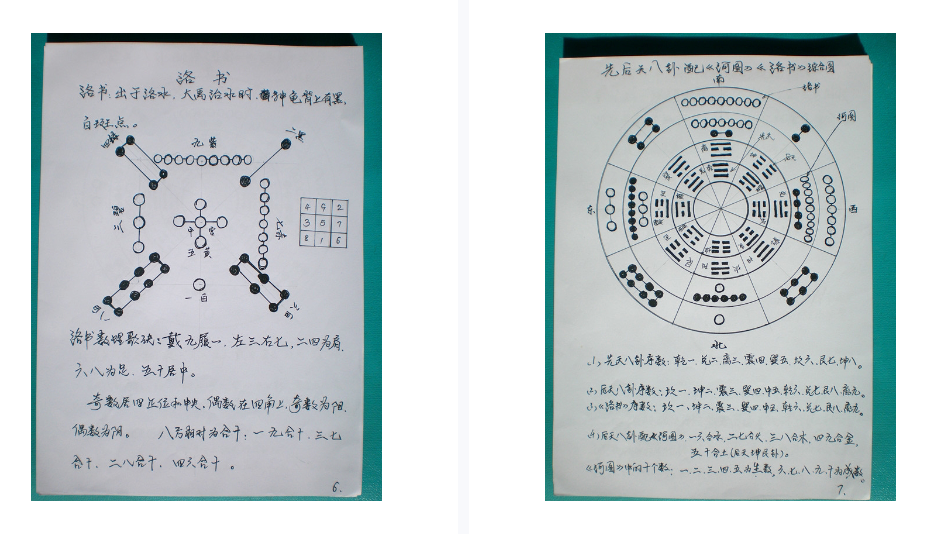 洛书
洛书:出于洛水.大禹治水时.神龟背上有黑,
白斑点。
九紫
二黑
三碧
七赤
中宫
五黄
一白
4 9 2
3 5 7
8 1 6
洛书数理歌诀:戴九履一.左三右七,二四为肩,
六八为足.五十居中。
奇数居四正位和中央.偶数在四角上.奇数为阳.
偶数为阴。 八方相对为合十:一九合十.三七
合十.二八合十.四六合十。
6.
先后天八卦配《河图》《洛书》综合图
南
洛书
河图
先天
后天
东
西
北
(1).先天八卦序数:乾一.兑二.离三.震四.巽五.坎六.艮七.坤八。
(2).后天八卦序数:坎一.坤二.震三.巽四.中五.乾六.兑七.艮八.离九。
(3).《洛书》序数:坎一.坤二.震三.巽四.中五.乾六.兑七.艮八.离九。
(4).后天八卦配《河图》.一六合水.二七合火.三八合木.四九合金.
五十合土(后天坤艮卦)。
《河图》中的十个数:一.二.三.四.五为生数.六.七.八.九.十为成数。
7.